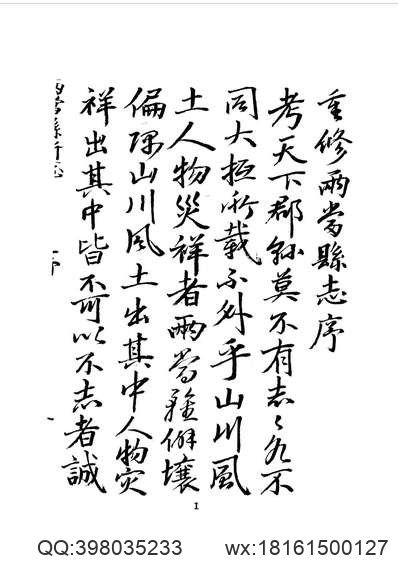 重修兩當縣志序
考天下郡縣莫不有志〻各不
同大抵所載不外乎山川風
土人物災祥者兩當雖僻壤
偏隅山川風土出其中人物灾
祥出其中皆不可以不志者誠
1
QQ:398035233 wx:18161500127